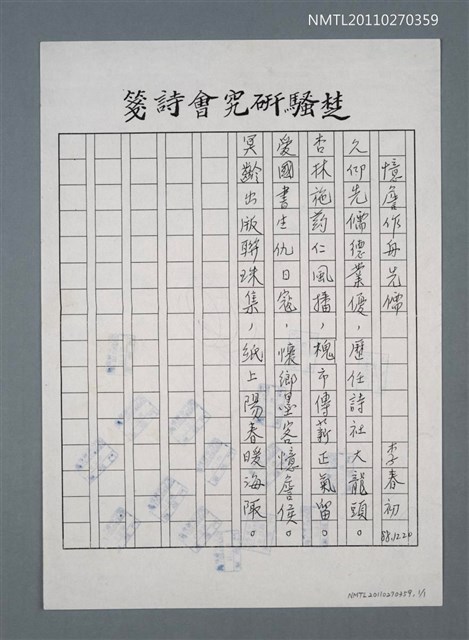 NMTL20110270359
楚騷研究會詩箋
憶詹作舟先儒 李春初 88.12.20
久仰先儒德業優,歷任詩社大龍頭。
杏林施药仁風播,槐市傳薪正氣留。
愛國書生仇日寇,懷鄉墨客憶詹侯。
冥齡出版聯珠集,紙上陽春暖海陬。
NMTL20110270359, 1/1